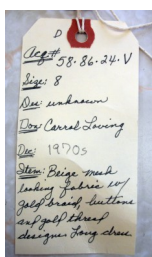 D
Acq# 58.86.24.V
Size: 8
Des unknown
Don Carral Loving
Dec: 1970s
Item: Beige mesh
looking fabric w/
gold braid, buttons
and gold thread
designs. Long dress